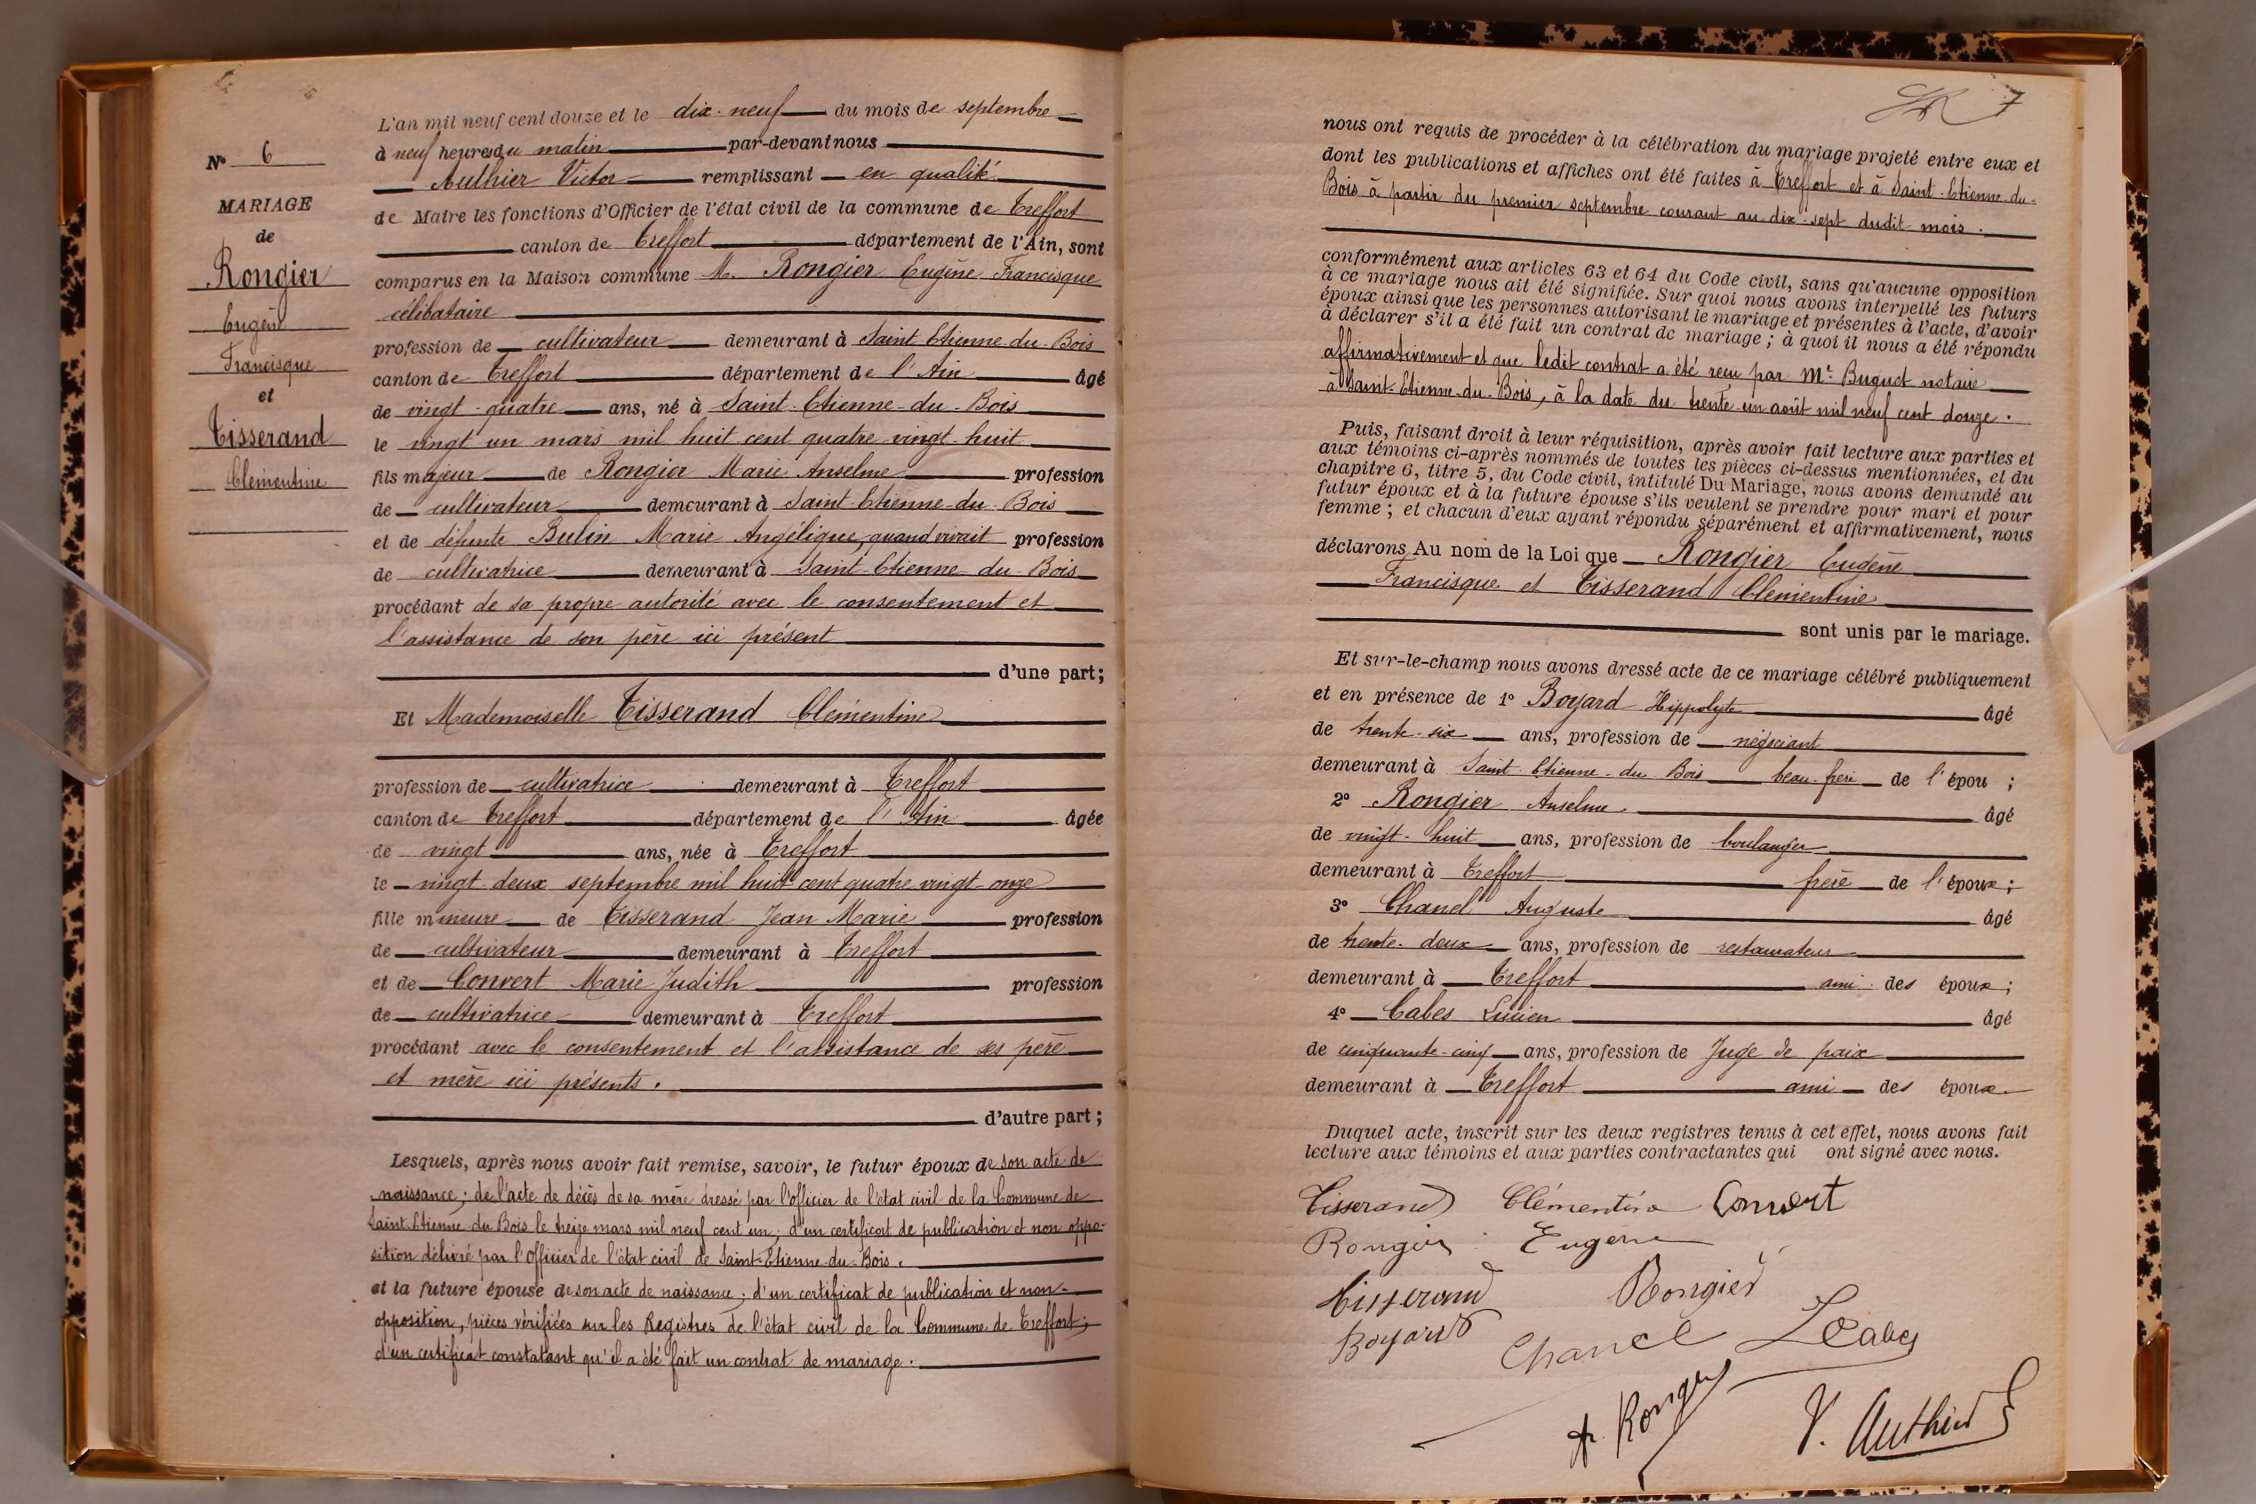 N° 6
MARIAGE
de
Rongier
Eugène
Francisque
et
Tisserand
Clémentine
L'an mil neuf cent douze et le dix-neuf du mois de septembre
à neuf heures du matin par-devant nous
Authier Victor remplissant en qualité
de Maire les fonctions d'Officier de l'état civil de la commune de Treffort
canton de Treffort département de l'Ain, sont
comparus en la Maison commune M. Rongier Eugène Francisque
célibataire
profession de cultivateur demeurant à Saint Etienne du Bois
canton de Treffort département de l'Ain âgé
de vingt-quatre ans, né à Saint-Etienne-du-Bois
le vingt un mars mil huit cent quatre vingt huit
fils majeur de Rongier Marie Anselme profession
de cultivateur demeurant à Saint Etienne-du-Bois
et de défunte Bulin Marie Angélique, quand vivait profession
de cultivatrice demeurant à Saint-Etienne du Bois
procédant de sa propre autorité avec le consentement et
l'assistance de son père ici présent
d'une part;
Et Mademoiselle Tisserand Clémentine
profession de cultivatrice demeurant à Treffort
canton de Treffort département de l'Ain âgée
de vingt ans, née à Treffort
le vingt-deux septembre mil huit cent quatre vingt-onze
fille mineure de Tisserand Jean Marie profession
de cultivateur demeurant à Treffort
et de Convert Marie Judith profession
de cultivatrice demeurant à Treffort
procédant avec le consentement et l'assistance de ses père
et mère ici présents.
d'autre part;
Lesquels, après nous avoir fait remise, savoir, le futur époux de son acte de
naissance; de l'acte de décès de sa mère dressé par l'officier de l'état civil de la Commune de
Saint-Etienne du Bois le treize mars mil neuf cent un; d'un certificat de publication et non oppo-
sition délivré par l'Officier de l'état civil de Saint-Etienne-du-Bois.
et la future épouse de son acte de naissance; d'un certificat de publication et non-
opposition, pièces vérifiées sur les Registres de l'état civil de la Commune de Treffort;
d'un certificat constatant qu'il a été fait un contrat de mariage.
7
nous ont requis de procéder à la célébration du mariage projeté entre eux et
dont les publications et affiches ont été faites à Treffort et à Saint-Etienne-du-
Bois à partir du premier septembre courant au dix-sept dudit mois.
conformément aux articles 63 et 64 du Code civil, sans qu'aucune opposition
à ce mariage nous ait été signifiée. Sur quoi nous avons interpellé les futurs
époux ainsi que les personnes autorisant le mariage et présentes à l'acte, d'avoir
à déclarer s'il a été fait un contrat de mariage; à quoi il nous a été répondu
affirmativement et que ledit contrat a été reçu par Mt Buguet notaire
à Saint-Etienne-du-Bois, à la date du trente-un août mil neuf cent douze.
Puis, faisant droit à leur réquisition, après avoir fait lecture aux parties et
aux témoins ci-après nommés de toutes les pièces ci-dessus mentionnées, et du
chapitre 6, titre 5, du Code civil, intitulé Du Mariage, nous avons demandé au
futur époux et à la future épouse s'ils veulent se prendre pour mari et pour
femme; et chacun d'eux ayant répondu séparément et affirmativement, nous
déclarons Au nom de la Loi que Rongier Eugène
Francisque et Tisserand Clémentine
sont unis par le mariage.
Et sur-le-champ nous avons dressé acte de ce mariage célébré publiquement
et en présence de 1° Boyard Hippolyte âgé
de trente-six ans, profession de négociant
demeurant à Saint-Etienne-du Bois beau-frère de l'épou ;
2° Rongier Anselme âgé
de vingt-huit ans, profession de boulanger
demeurant à Treffort frère de l'époux;
3° Chanel Auguste âgé
de trente-deux ans, profession de restaurateur
demeurant à Treffort ami des époux;
4° Cabes Lucien âgé
de cinquante-cinq ans, profession de Juge de paix
demeurant à Treffort ami des époux
Duquel acte, inscrit sur les deux registres tenus à cet effet, nous avons fait
lecture aux témoins et aux parties contractantes qui ont signé avec nous.
Tisserand Clémentine Convert
Rongier Eugène
Tisserand Rongier
Boyard Chanel L Cabes
A. Rongier V. Authier